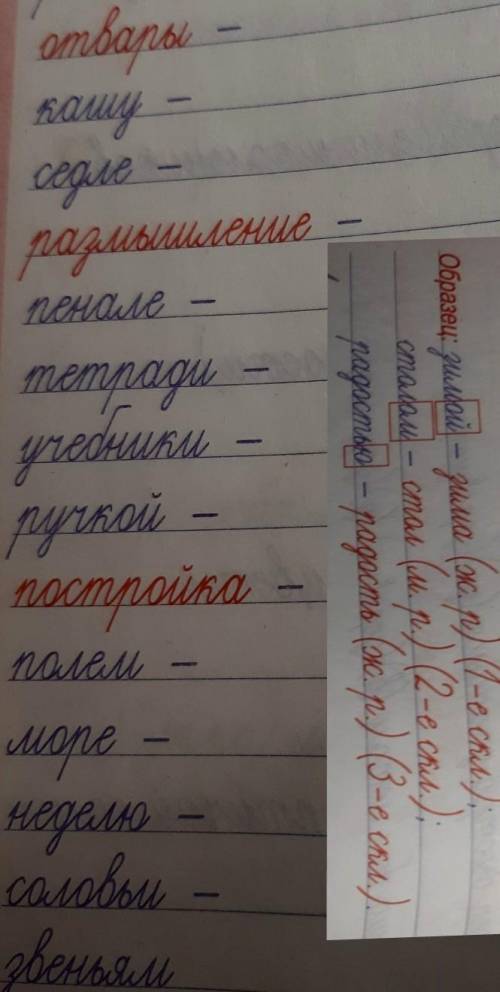 отвары –
кашу –
седле –
размышление –
пенале –
тетради –
учебники –
ручкой –
постройка –
полем –
море –
неделю –
соловьи –
звеньям
Образец: зимой – зима (ж. р) (1-е скл.);
столом – стол (м. р.) (2-е скл.);
радостью – радость (ж. р.) (3-е скл.).